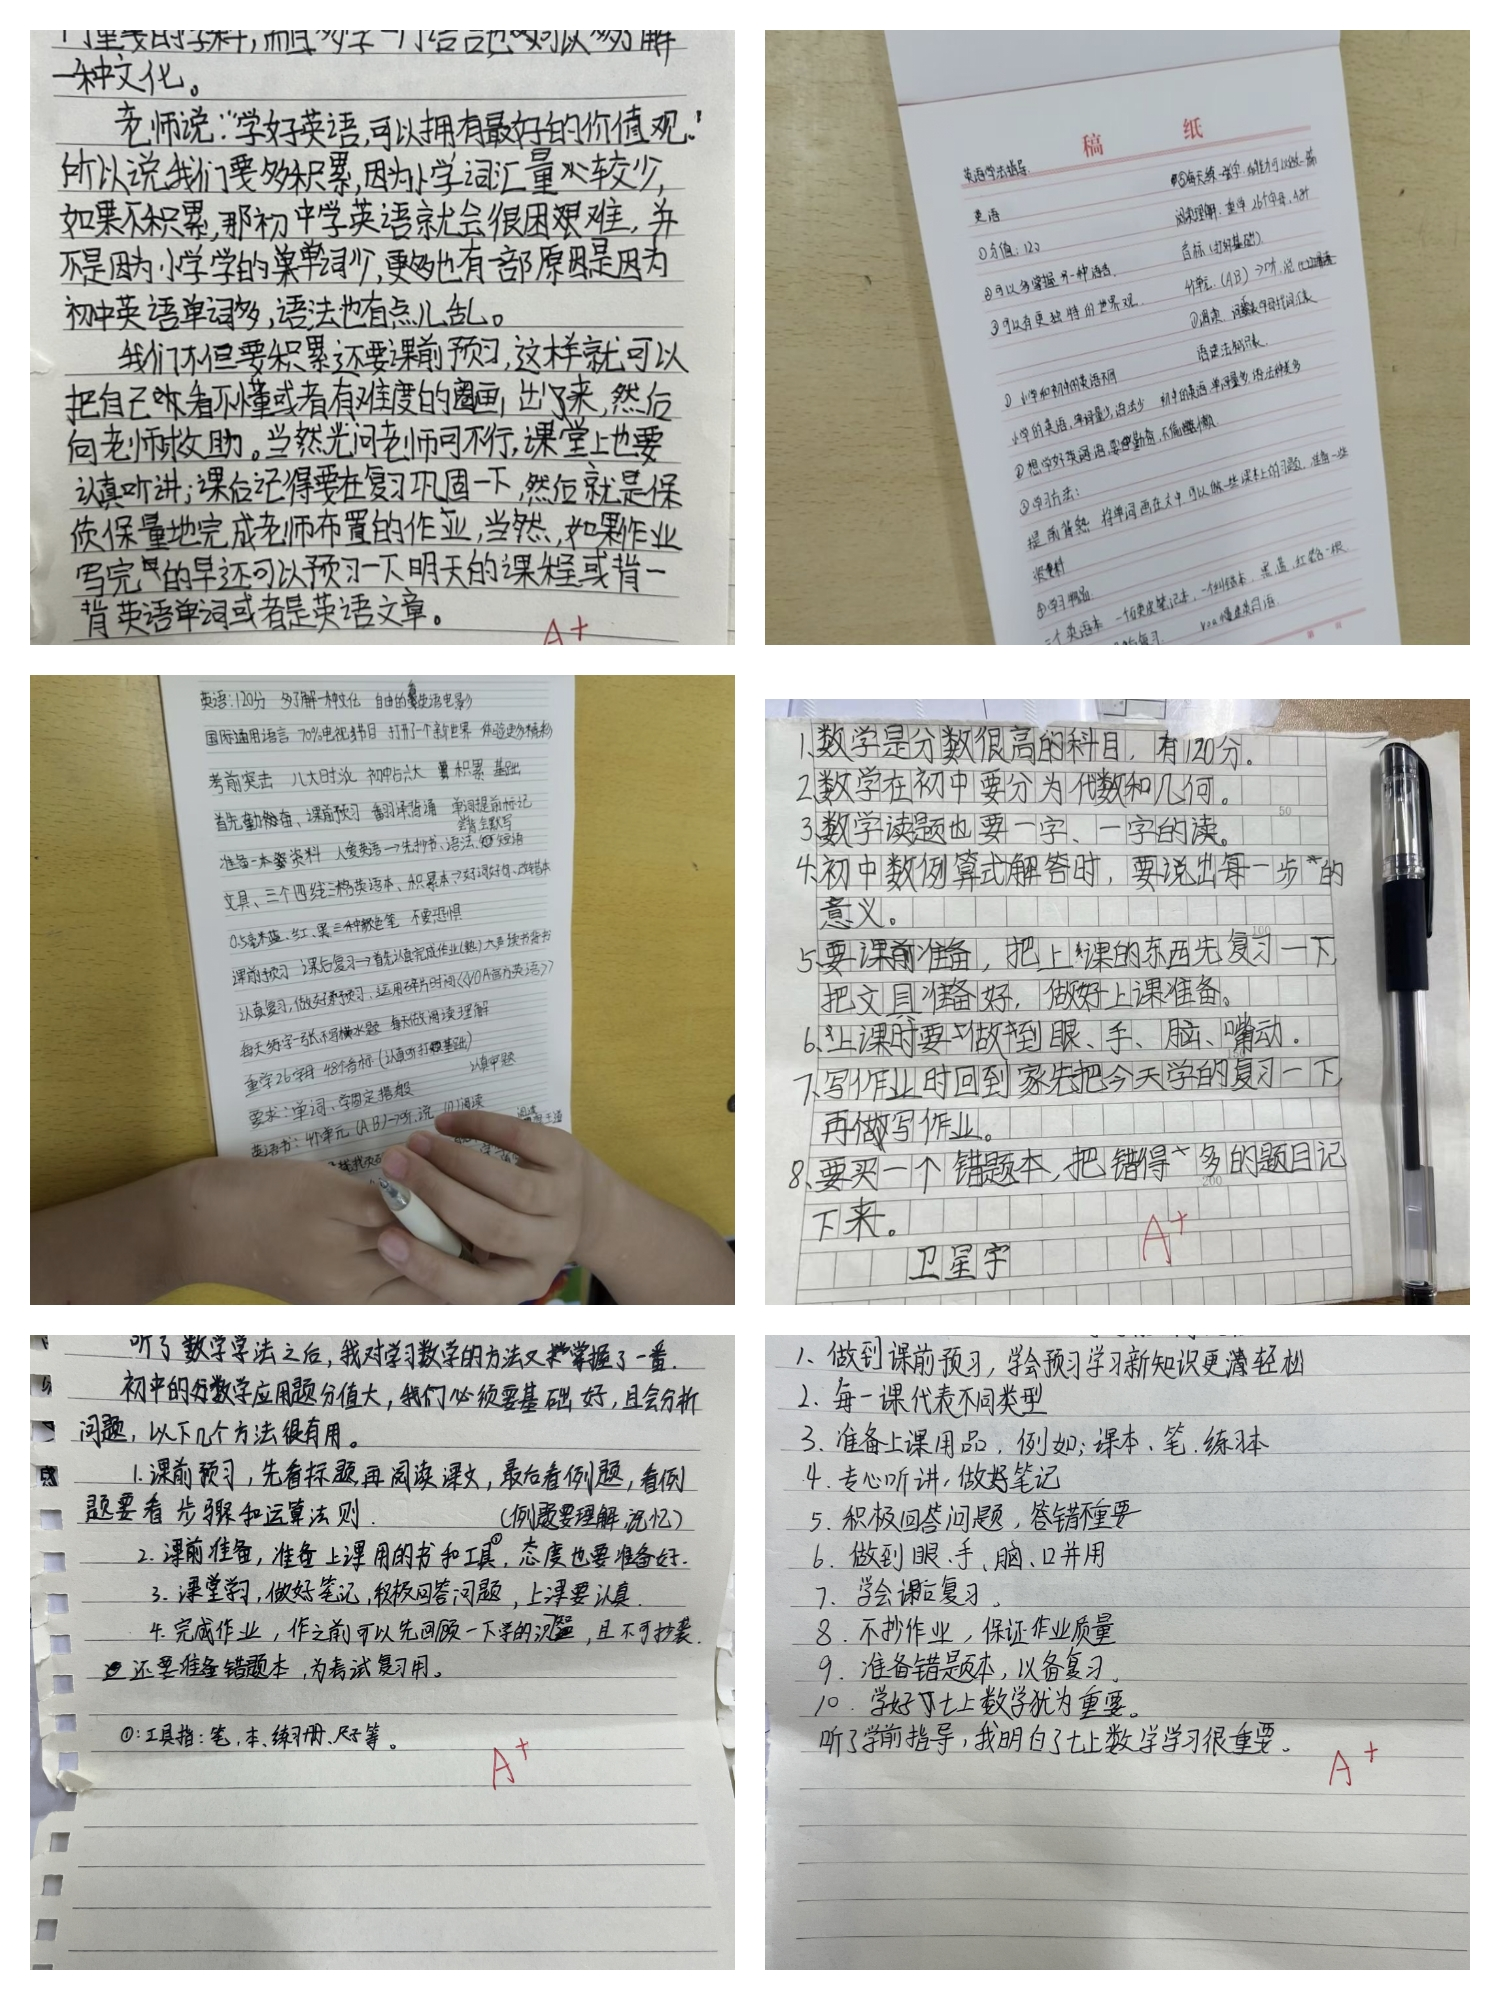 门重要的学科，而且多学一门语言也可以多了解
一种文化。
老师说："学好英语，可以拥有最好的价值观。"
所以说我们要多积累，因为小学词汇量比较少，
如果不积累，那初中学英语就会很困艰难，并
不是因为小学学的单词少，更多也有一部原因是因为
初中英语单词多，语法也有点儿乱。
我们不但要积累还要课前预习，这样就可以
把自己看不懂或者有难度的圈画出来，然后
向老师求助。当然光问老师可不行，课堂上也要
认真听讲；课后记得要在复习巩固一下，然后就是保
质保量地完成老师布置的作业，当然，如果作业
写完的早还可以预习一下明天的课程或背一
背英语单词或者是英语文章。
A+
稿 纸
英语学法指导
英语
①分值：120
②可以多掌握另一种语言.
③可以有更独特的世界观.
⑤每天练一张字
阅读理解. 重学26个字母, 48个
音标(打好基础)
4个单元. (AB)→听.说
①小学和初中的英语不同
小学的英语,单词量少,语法少 初中的英语,单词量多,语法种类多
②想学好英语
③学习方法：
提前背熟 将单词画在文中 可以做一些课本上的习题. 准备一些
资料
三个英语本 一个纠错本. 黑.蓝.红笔各一根
英语：120分 多了解一种文化 自由的看英语电影
国际通用语言 70%电视节目 打开了一个新世界 体验更多精彩
考前突击 八大时态 初中占六大 积累 基础
首先勤奋、课前预习 翻译背诵 单词提前标记
会背会默写
准备一本资料 人爱英语→先抄书、语法、短语
文具、三个四线三格英语本、积累本→好词好句、改错本
0.5毫米蓝、红、黑三种颜色笔 不要恐惧
课前预习 课后复习→首先认真完成作业(熟)大声读书背书
认真复习,做好预习. 运用碎片时间《VOA慢速英语》
每天练字一张不写模水题 每天做阅读理解
重学26字母 48个音标(认真听打好基础)
认真审题
要求：单词、学固定搭配
英语书：4个单元(A.B)→听.说 阅读
1、数学是分数很高的科目，有120分。
2、数学在初中要分为代数和几何。
3、数学读题也要一字、一字的读。
4、初中数例算式解答时，要说出每一步的
意义。
5、要课前准备，把上课的东西先复习一下，
把文具准备好，做好上课准备。
6、上课时要做到眼、手、脑、嘴动.
7、写作业时回到家先把今天学的复习一下，
再做写作业。
8、要买一个错题本，把错得多的题目记
下来。
卫星宇
A+
听了数学学法之后，我对学习数学的方法又掌握了一番.
初中的数学应用题分值大，我们必须要基础好，且会分析
问题，以下几个方法很有用。
1.课前预习，先看标题,再阅读课文，最后看例题，看例
题要看步骤和运算法则. (例题要理解,记忆)
2.课前准备，准备上课用的书和工具①，态度也要准备好.
3.课堂学习，做好笔记，积极回答问题，上课要认真.
4.完成作业，作之前可以先回顾一下学的知识，且不可抄袭.
还要准备错题本，为考试复习用。
①:工具指：笔，本、练习册、尺子等。
A+
1、做到课前预习，学会预习学习新知识更清轻松
2、每一课代表不同类型
3、准备上课用品，例如；课本、笔.练习本
4、专心听讲，做好笔记
5、积极回答问题，答错不重要
6、做到眼、手、脑、口并用
7、学会课后复习。
8、不抄作业，保证作业质量
9、准备错题本，以备复习。
10、学好七上数学犹为重要。
听了学前指导，我明白了七上数学学习很重要。
A+